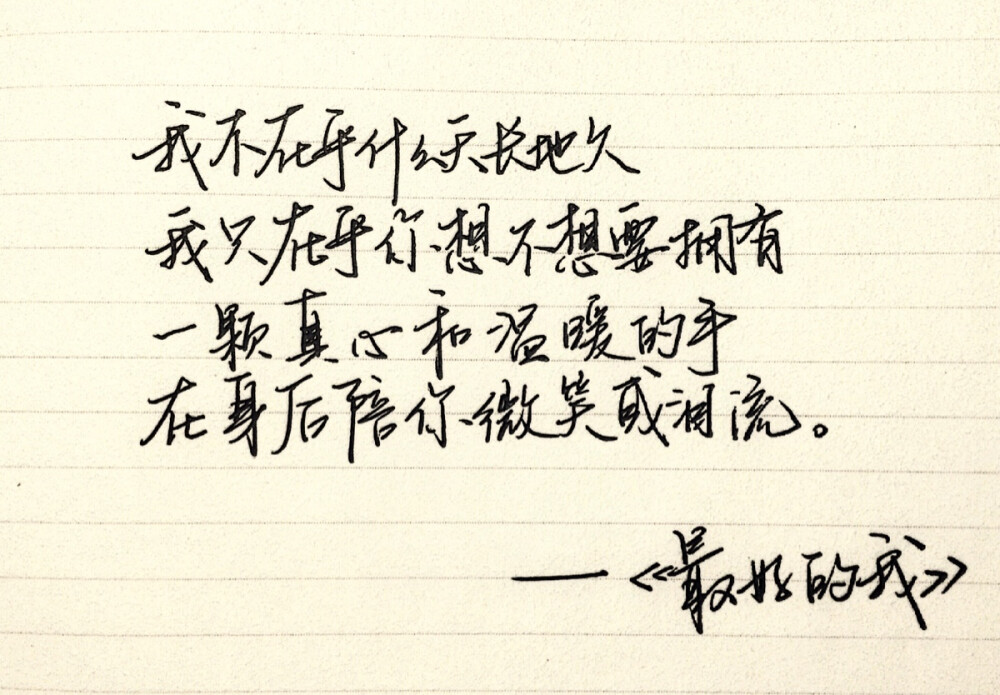 我不在乎什么天长地久
我只在乎你想不想要拥有
一颗真心和温暖的手
在身后陪你微笑或泪流。
——《最好的我》